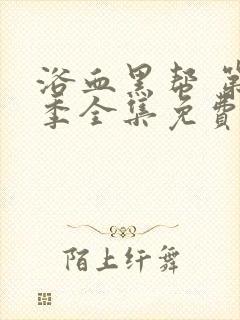 浴血黑帮 第
季全集免费
陌上纤舞